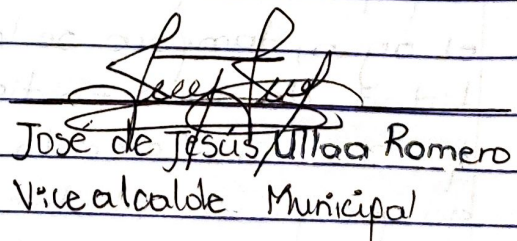 José de Jesús Ulloa Romero
Vicealcalde Municipal